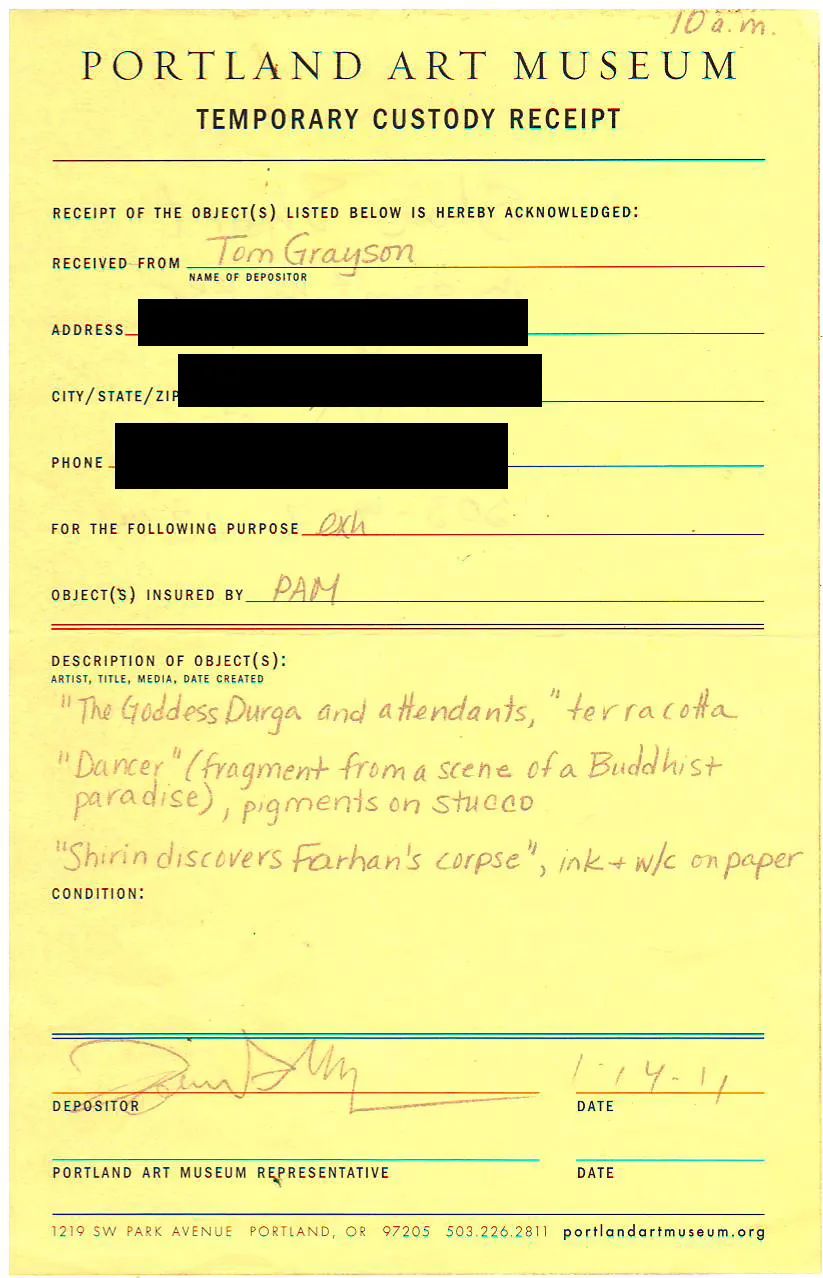 10 a.m.
PORTLAND ART MUSEUM
TEMPORARY CUSTODY RECEIPT
RECEIPT OF THE OBJECT(S) LISTED BELOW IS HEREBY ACKNOWLEDGED:
RECEIVED FROM Tom Grayson
NAME OF DEPOSITOR
ADDRESS
CITY/STATE/ZIP
PHONE
FOR THE FOLLOWING PURPOSE exh
OBJECT(S) INSURED BY PAM
DESCRIPTION OF OBJECT(S):
ARTIST, TITLE, MEDIA, DATE CREATED
"The Goddess Durga and attendants," terracotta
"Dancer" (fragment from a scene of a Buddhist
paradise), pigments on stucco
"Shirin discovers Farhan's corpse", ink + w/c on paper
CONDITION:
1-14-11
DEPOSITOR DATE
PORTLAND ART MUSEUM REPRESENTATIVE DATE
1219 SW PARK AVENUE PORTLAND, OR 97205 503.226.2811 portlandartmuseum.org